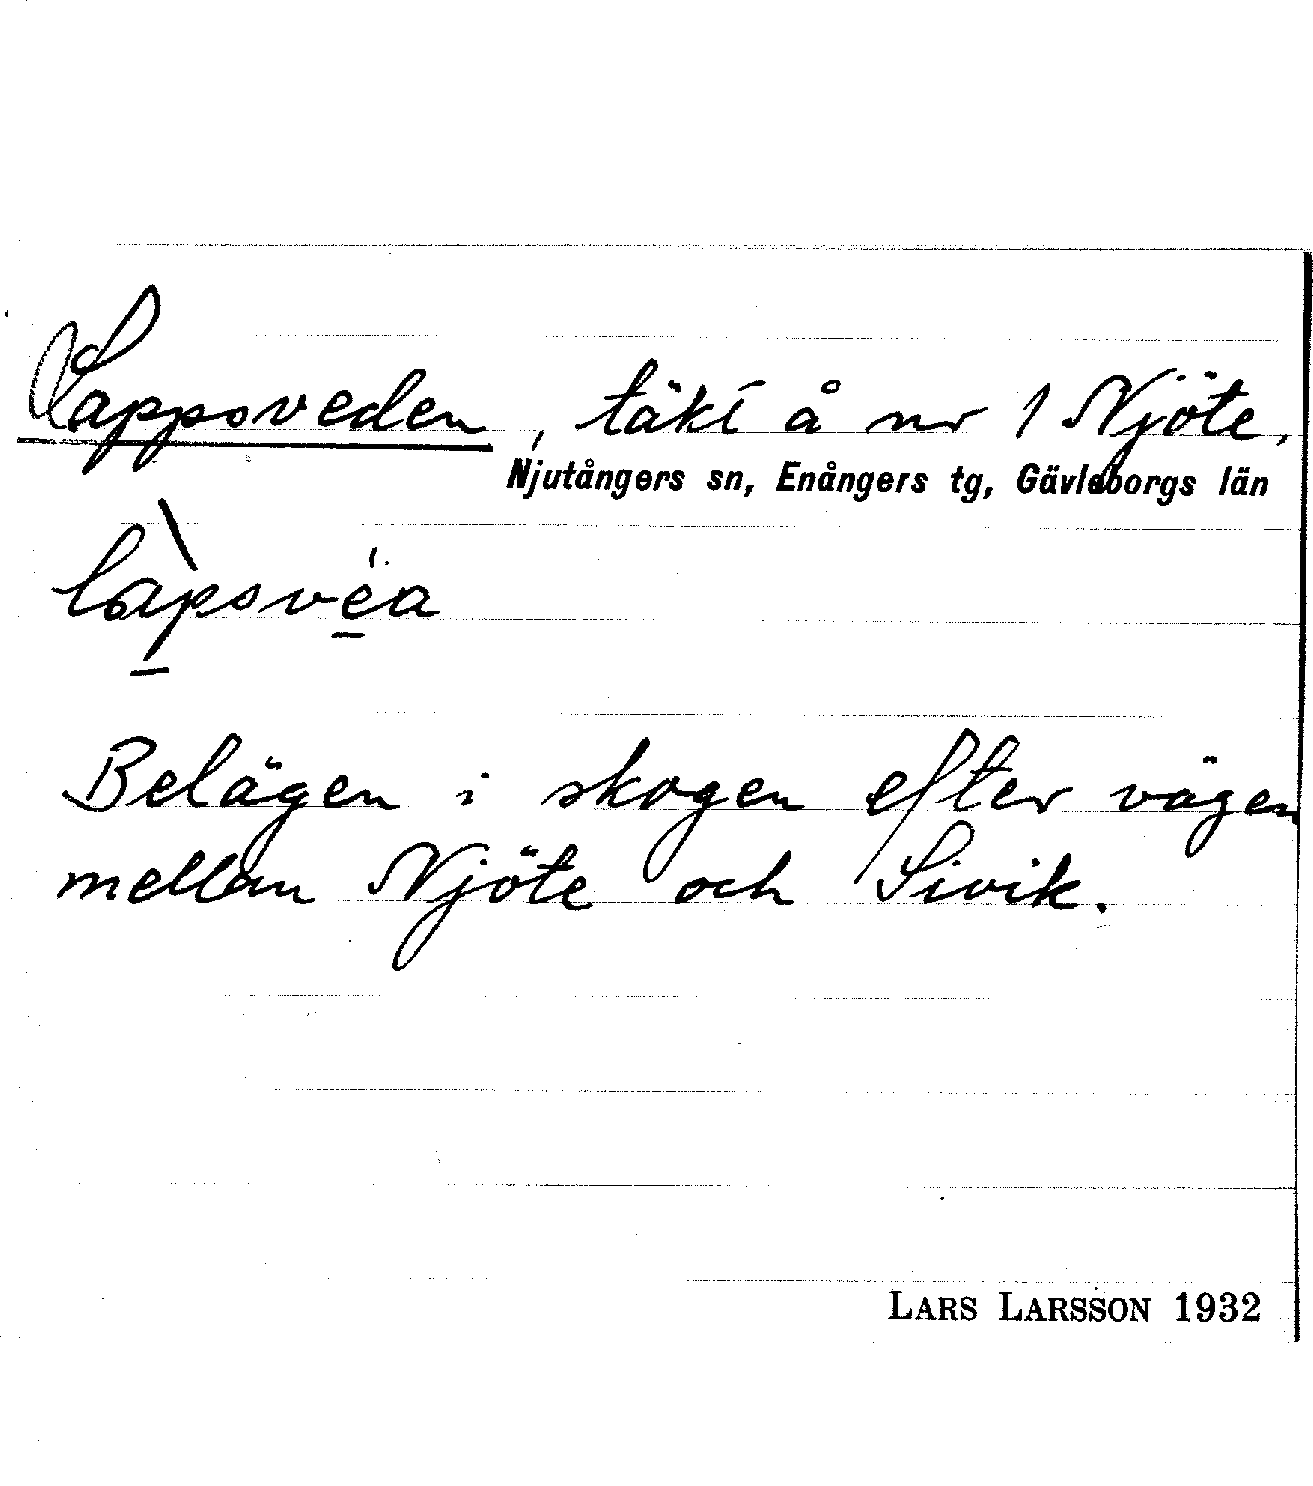 Lappsveden, täkt å nr 1 Njöte.
Njutångers sn, Enångers tg, Gävleborgs län
làpsvéa
Belägen i skogen efter vägen
mellan Njöte och Sivik.
LARS LARSSON 1932